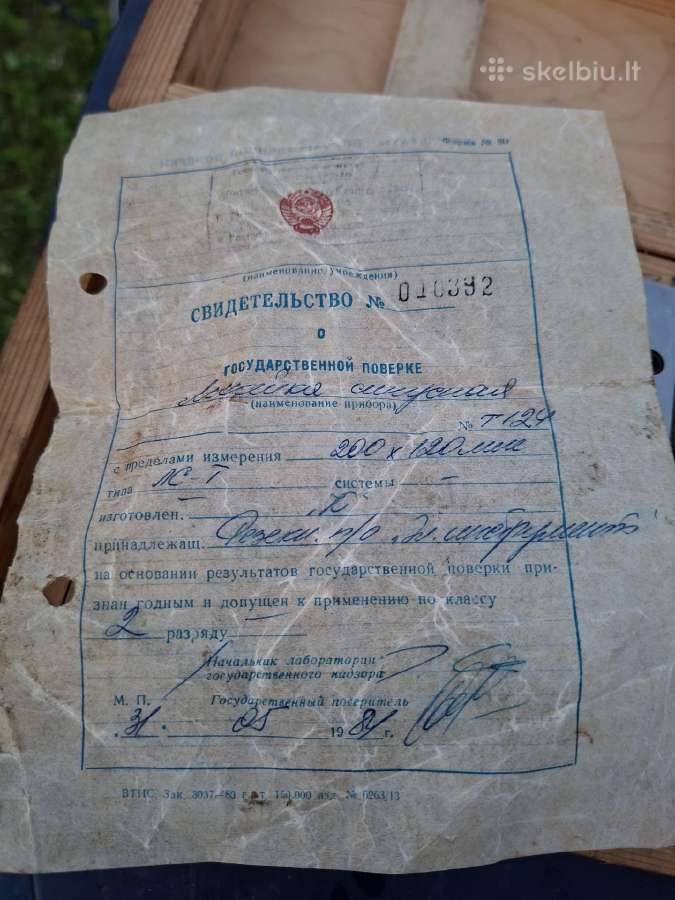 skelbiu.lt
Форма № 80
(наименование учреждения)
СВИДЕТЕЛЬСТВО № 010392
о
ГОСУДАРСТВЕННОЙ ПОВЕРКЕ
Линейка синусная
(наименование прибора)
№ Т124
с пределами измерения 200 х 120 мм
типа ЛС-Т системы —
изготовлен.
принадлежащ. Резекн. п/о „Эл. инструмент"
на основании результатов государственной поверки при-
знан годным и допущен к применению по классу
2 разряду
Начальник лаборатории
государственного надзора
М. П. Государственный поверитель
31. 05 1984 г.
ВТИС. Зак. 3037—80 г. т. 150.000 изд. № 0263/13